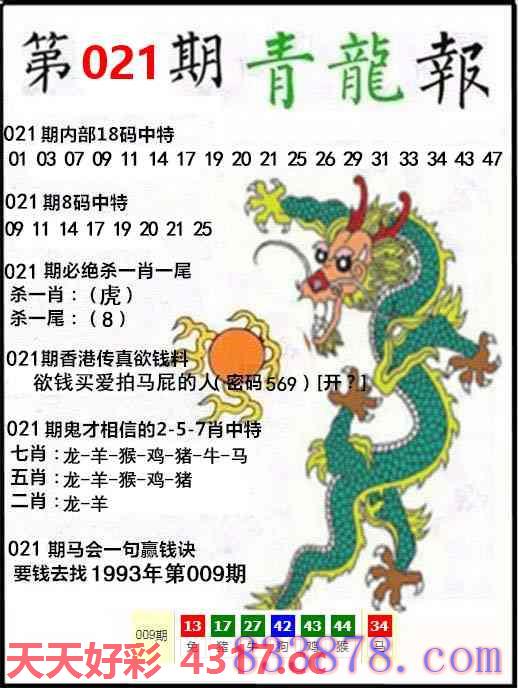 第021期 青龍報
021期内部18码中特
01 03 07 09 11 14 17 19 20 21 25 26 29 31 33 34 43 47
021期8码中特
09 11 14 17 19 20 21 25
021 期必绝杀一肖一尾
杀一肖：（虎）
杀一尾：（8）
021期香港传真欲钱料
欲钱买爱拍马屁的人(密码569) [开？]
021期鬼才相信的2-5-7肖中特
七肖：龙-羊-猴-鸡-猪-牛-马
五肖：龙-羊-猴-鸡-猪
二肖：龙-羊
021 期马会一句赢钱诀
要钱去找1993年第009期
009期 13 17 27 42 43 44 34
兔 猪 牛 狗 鸡 猴 马
天天好彩 4317.cc